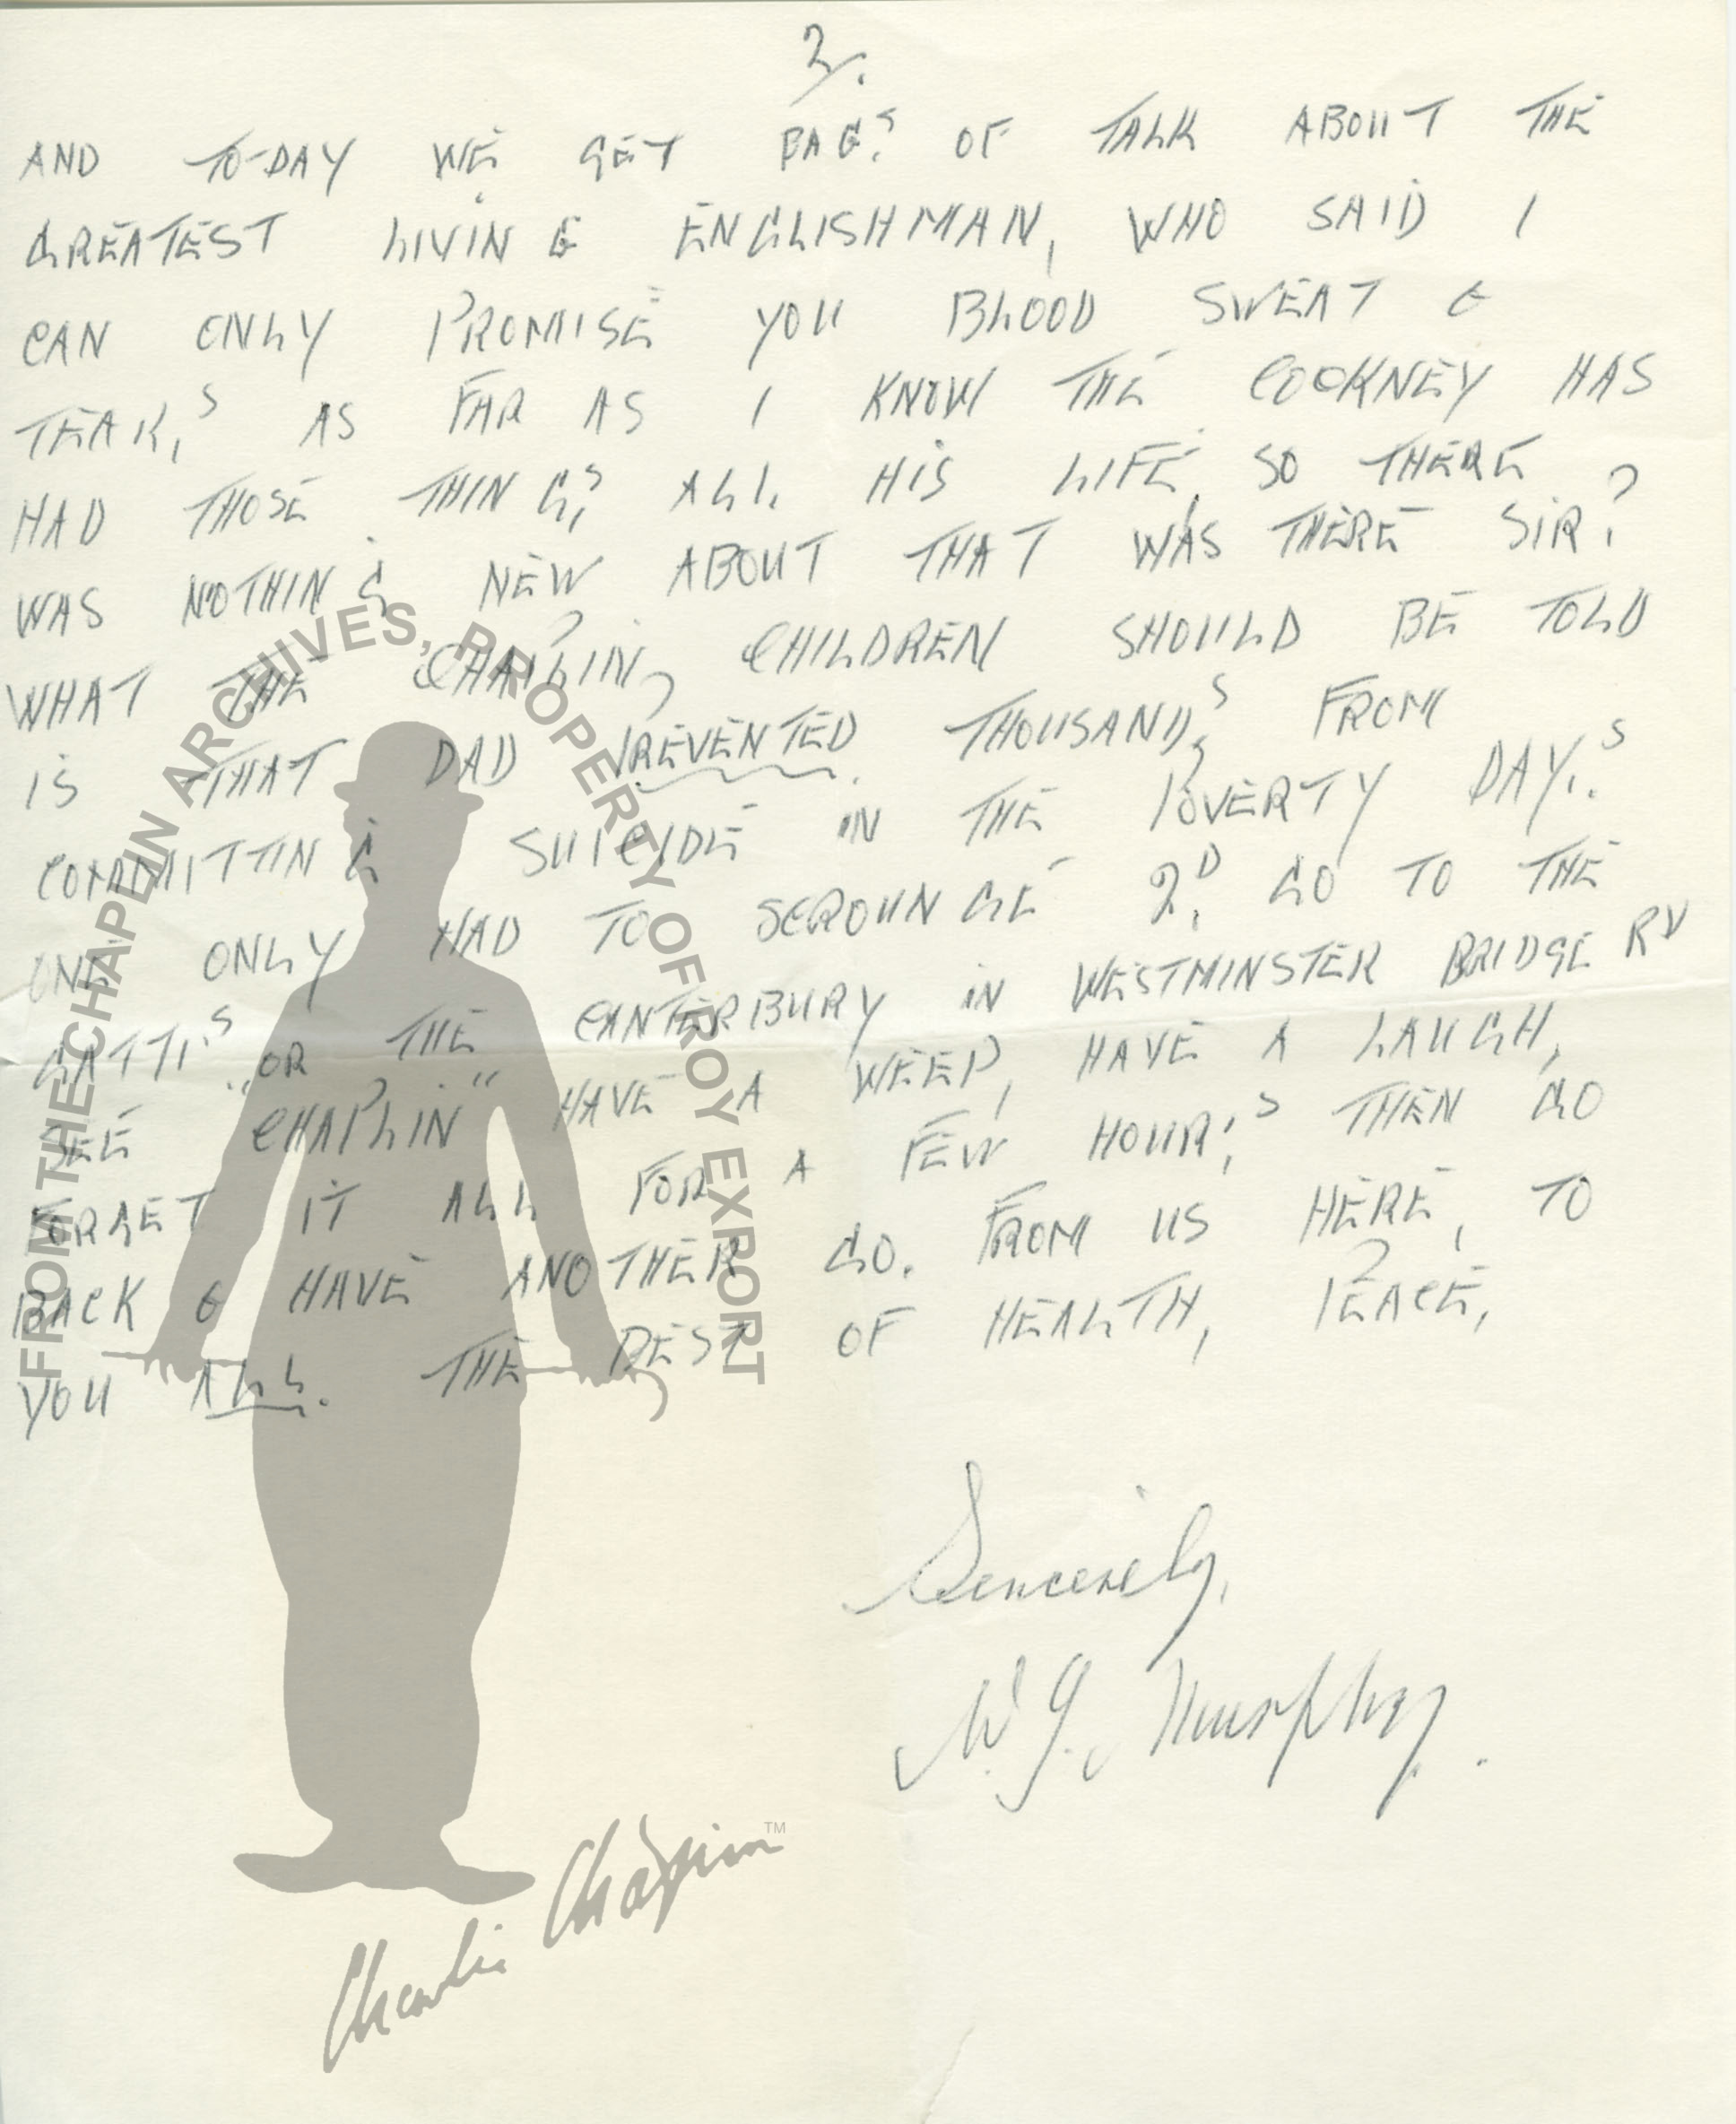 2/.
AND TO-DAY WE GET BAG,S OF TALK ABOUT THE
GREATEST LIVING ENGLISHMAN, WHO SAID I
CAN ONLY PROMISE YOU BLOOD SWEAT &
TEAR,S AS FAR AS I KNOW THE COCKNEY HAS
HAD THOSE THING,S ALL HIS LIFE, SO THERE
WAS NOTHING NEW ABOUT THAT WAS THERE SIR?
WHAT THE CHAPLIN CHILDREN SHOULD BE TOLD
IS THAT DAD PREVENTED THOUSAND,S FROM
COMMITTING SUICIDE IN THE POVERTY DAY,S
ONE ONLY HAD TO SCROUNGE 2D, GO TO THE
GATTI,S OR THE CANTERBURY IN WESTMINSTER BRIDGE RD
SEE "CHAPLIN" HAVE A WEEP, HAVE A LAUGH,
FORGET IT ALL FOR A FEW HOUR,S THEN GO
BACK & HAVE ANOTHER GO. FROM US HERE, TO
YOU ALL. THE BEST OF HEALTH, PEACE,
Sincerely,
W. J. Murphy.
FROM THE CHAPLIN ARCHIVES, PROPERTY OF ROY EXPORT
Charlie Chaplin TM